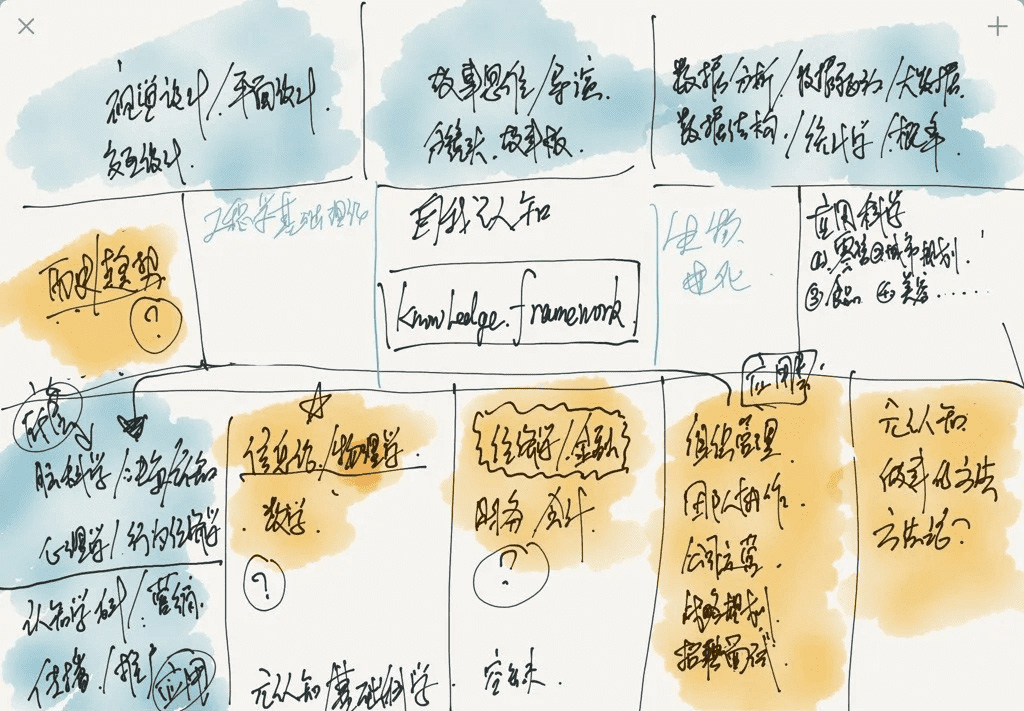 视觉设计/平面设计.
交互设计.
故事思维/导演.
分镜头.故事板.
数据分析/数据驱动/大数据.
数据结构./统计学/.概率.
历史/趋势
?
工程学基础理论
自我认知
knowledge.framework
生物.
进化
应用科学
① 累 ②城市规划.
③ 食品 ④ 美容......
应用类.
脑科学/决策/元认知
心理学/行为经济学
认知学科/营销.
传播./推广
应用
信息论./物理学
.数学.
?
元认知基础科学.
经济学/金融
财务 会计.
?
空缺.
组织管理
团队协作.
公司运营.
战略规划.
招聘面试.
元认知.
做事的方法
方法论?